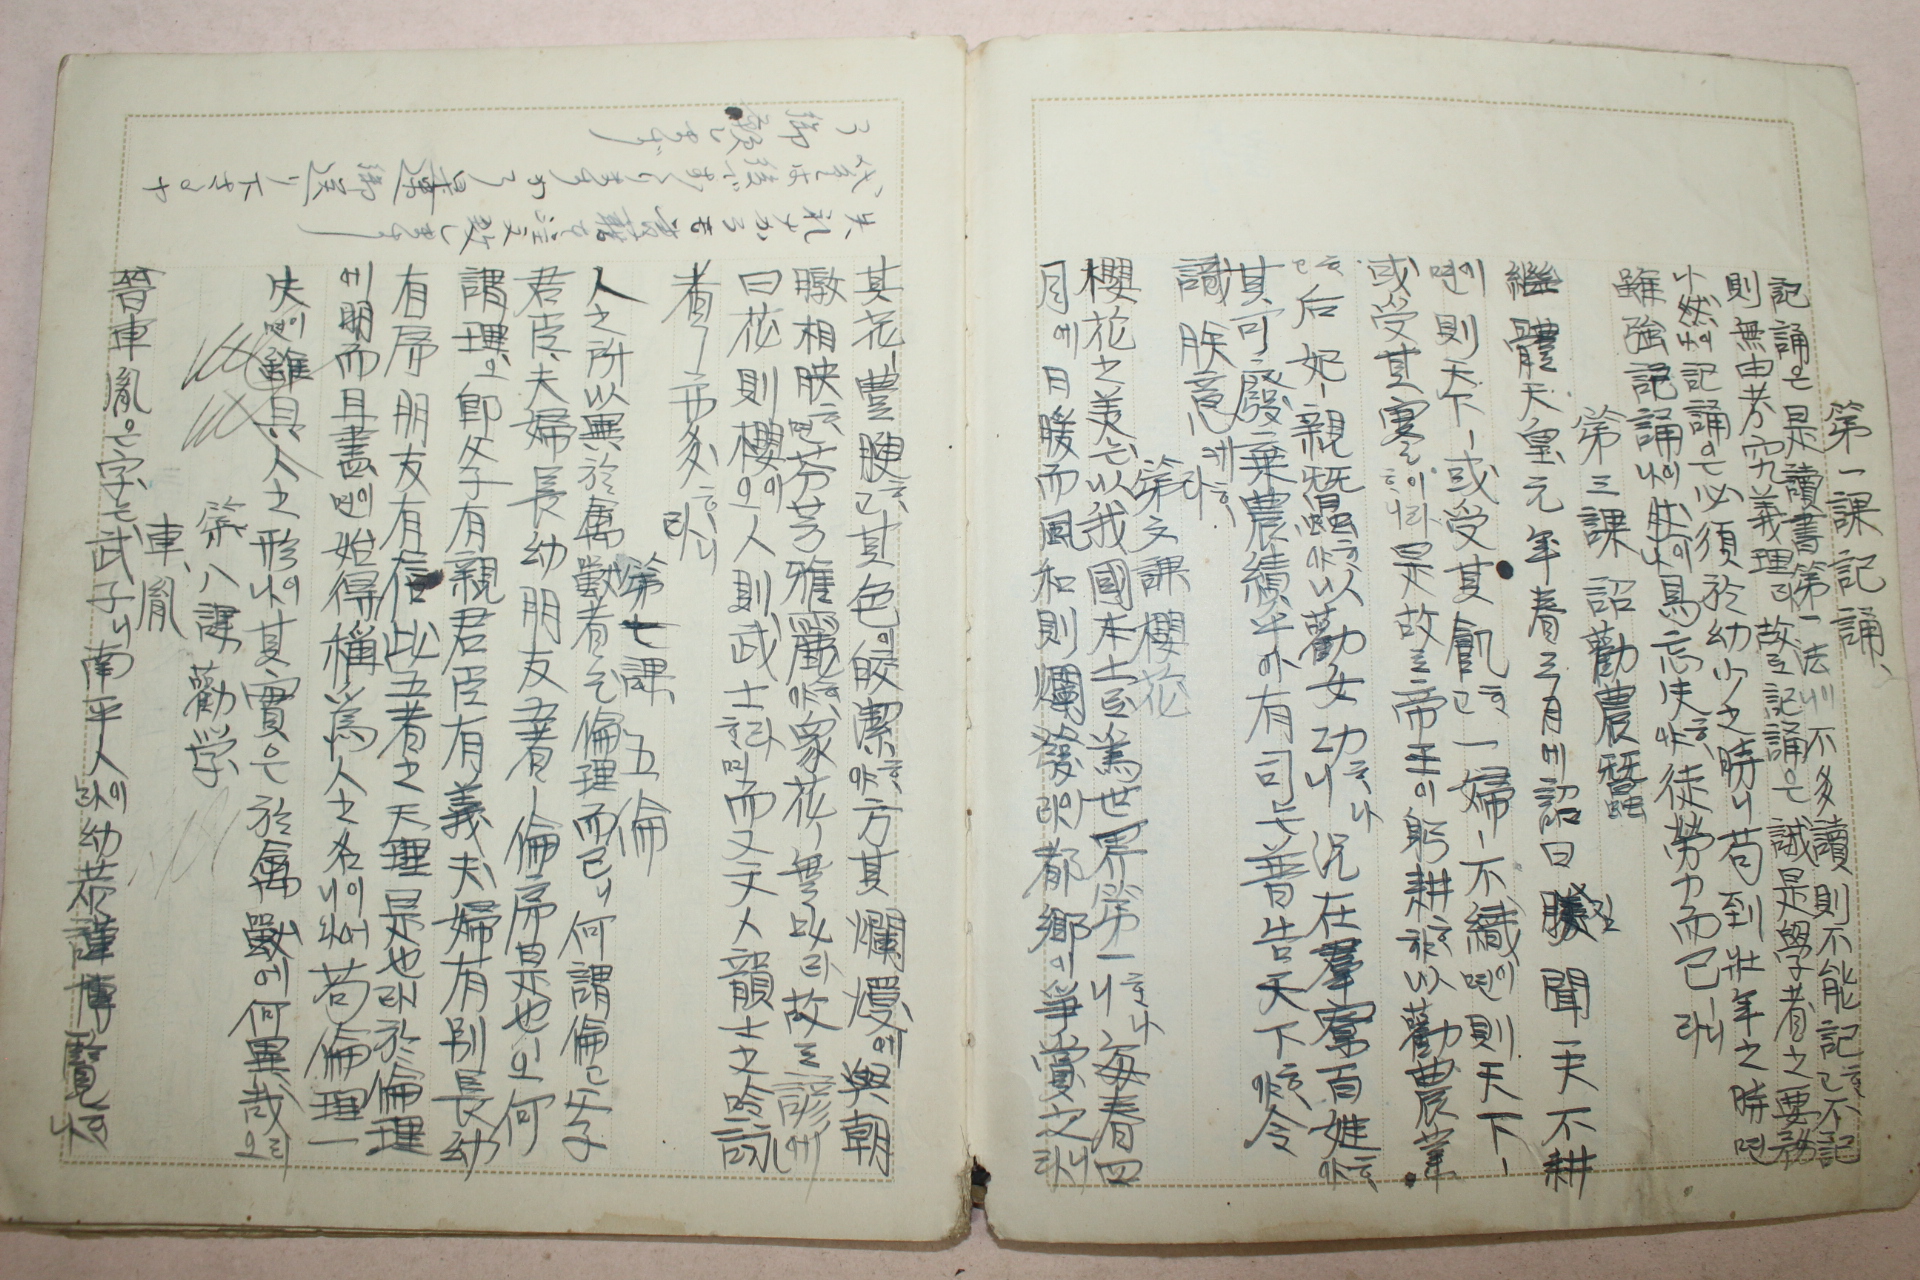 第一課 記誦
記誦은 是讀書第一法이니 不多讀則不能記하고 不記
則無由考究義理라 故로 記誦은 誠是學者之要務
나 然이나 記誦은 必須於幼少之時니 苟到壯年之時면
雖強記誦이나 失이 爲忘失하야 徒勞力而已니라
第三課 詔勸農蠶
繼體天皇元年春三月에 詔曰朕聞一夫不耕
이면 則天下ㅣ或受其飢하고 一婦ㅣ不織이면 則天下ㅣ
或受其寒이라하니 是故로 帝王이 躬耕하야 以勸農業
하고 后妃ㅣ親蠶하야 以勸女功하나니 況在羣寮百姓하야
其可廢棄農績乎아 有司는 普告天下하야 令
識朕意케하라
第五課 櫻花
櫻花之美는 以我國本土로 爲世界第一하나니 每春四
月에 日暖而風和則爛發이라 都鄕이 爭賞之하나니
其花ㅣ豊腴하고 其色이 皎潔하야 方其爛熳에 與朝
暾相映하면 芬芳雅麗하야 衆花ㅣ無以라 故로 諺에
曰花則櫻이오 人則武士라하며 而又文人韻士之吟詠
者ㅣ亦多하니라
第七課 五倫
人之所以異於禽獸者는 倫理而已니 何謂倫고 父子
君臣、夫婦長幼朋友五者ㅣ倫序是也오 何
謂理오 卽父子有親君臣有義夫婦有別長幼
有序朋友有信此五者之天理是也라 於倫理
에 明而且盡이면 始得稱爲人之名이어니와 苟倫理一
失이면 雖具人之形이나 其實은 於禽獸에 何異哉오
第八課 勸学
車胤
晉車胤은 字는 武子니 南平人이라 幼恭謹博覽하나
失礼ナガラ
御送リ下サ